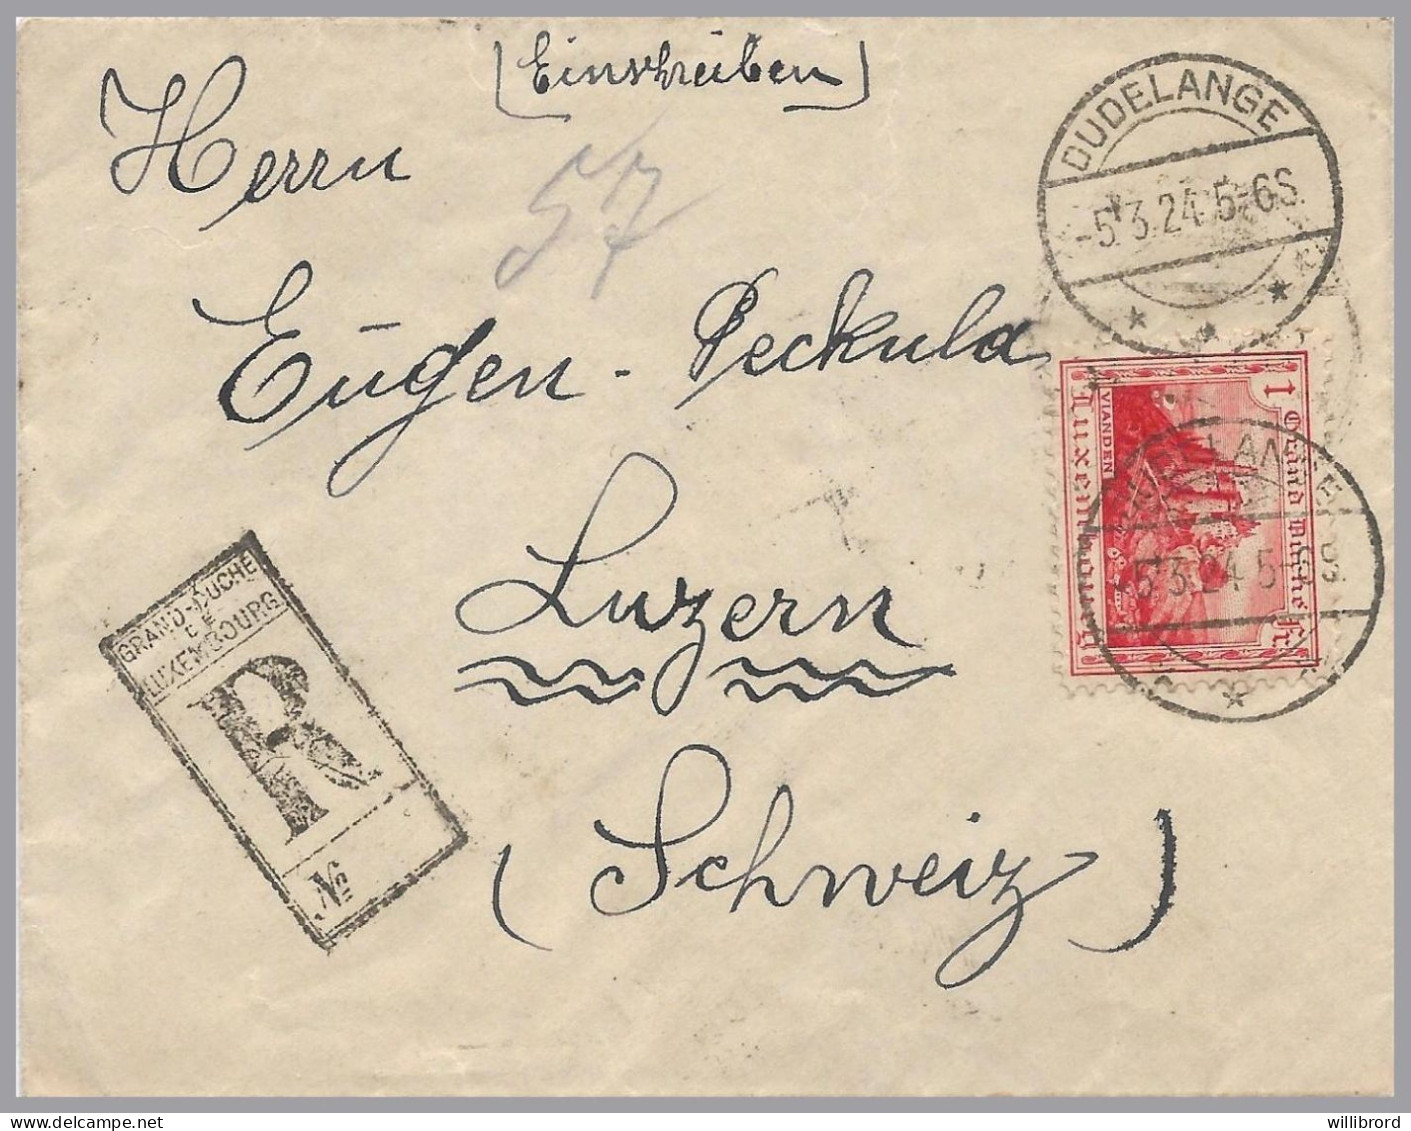 (Einschreiben)
Herrn
57
Eugen - Peckula
Luzern
(Schweiz)
DUDELANGE
-5.3.24.5-6S.
1
VIANDEN
Grand Duché
Luxembourg
fr
DUDELANGE
-5.3.24.5-6S
GRAND-DUCHÉ
DE
LUXEMBOURG
R
№
willibrord